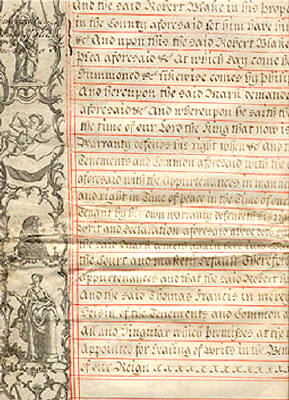 And the said Robert Blake in his prop
in the County aforesaid let him have hi
&c And upon this the said Robert Blake
plea aforesaid &c At which day come th
Summoned &c likewise comes by Phili
And hereupon the said Mark demand
aforesaid &c And whereupon he saith th
the time of our Lord the King that now is
Warranty defends his right when &c And t
Tenements and Common aforesaid with the a
aforesaid with the Appurtenances in manner
and right in time of peace in the time of our
Tenant by his own warranty defendeth his righ
and declaration aforesaid above
the said Mark
the Court and maketh default Therefore
Appurtenances and that the said Robert
And the said Thomas Francis in merc
Seisin of the Tenements and Common a
All and Singular which premisses at the
Appointed for Sealing of Writs in the Ben
of our Reign